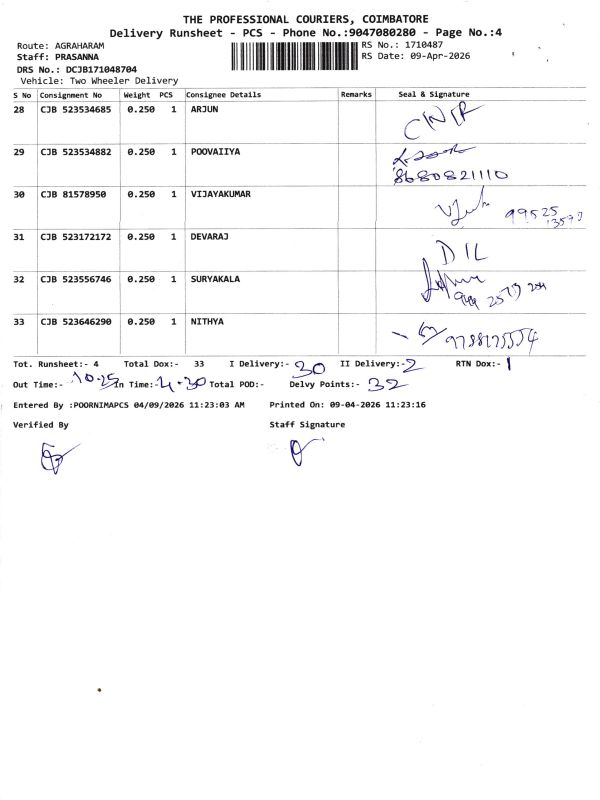 THE PROFESSIONAL COURIERS, COIMBATORE
Delivery Runsheet - PCS - Phone No.:9047080280 - Page No.:4
Route: AGRAHARAM RS No.: 1710487
Staff: PRASANNA RS Date: 09-Apr-2026
DRS No.: DCJB171048704
Vehicle: Two Wheeler Delivery
S No Consignment No Weight PCS Consignee Details Remarks Seal & Signature
28 CJB 523534685 0.250 1 ARJUN
29 CJB 523534882 0.250 1 POOVAIIYA
8680821110
30 CJB 81578950 0.250 1 VIJAYAKUMAR
99525
31 CJB 523172172 0.250 1 DEVARAJ
DIL
32 CJB 523556746 0.250 1 SURYAKALA
33 CJB 523646290 0.250 1 NITHYA
Tot. Runsheet:- 4 Total Dox:- 33 I Delivery:- 30 II Delivery:- 2 RTN Dox:- 1
Out Time:- 10-25 In Time:- 4-30 Total POD:- Delvy Points:- 32
Entered By :POORNIMAPCS 04/09/2026 11:23:03 AM Printed On: 09-04-2026 11:23:16
Verified By Staff Signature